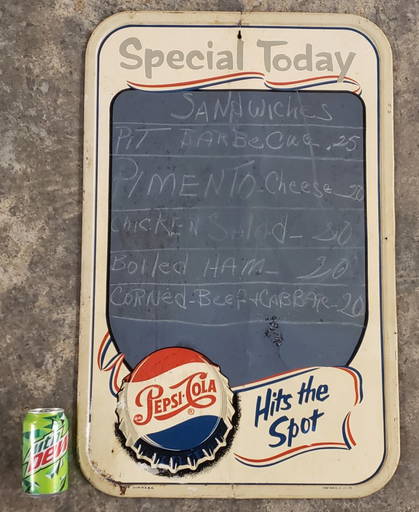 Special Today
SANDWICHES
PIT BARBECUE .25
PIMENTO Cheese 20
CHICKEN Salad - 20
Boiled HAM - 20
CORNed-Beef + CABBAGE - 20
PEPSI-COLA
®
Hits the
Spot
mtn
DEW